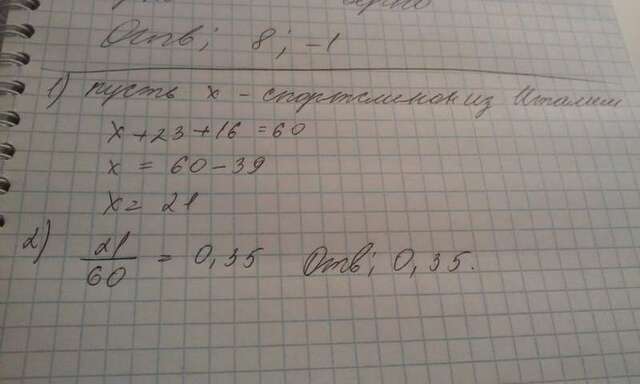 Отв; 8; -1
1) пусть х - спортсменок из Италии
х + 23 + 16 = 60
х = 60 - 39
х = 21
2) 21/60 = 0,35 Отв; 0,35.